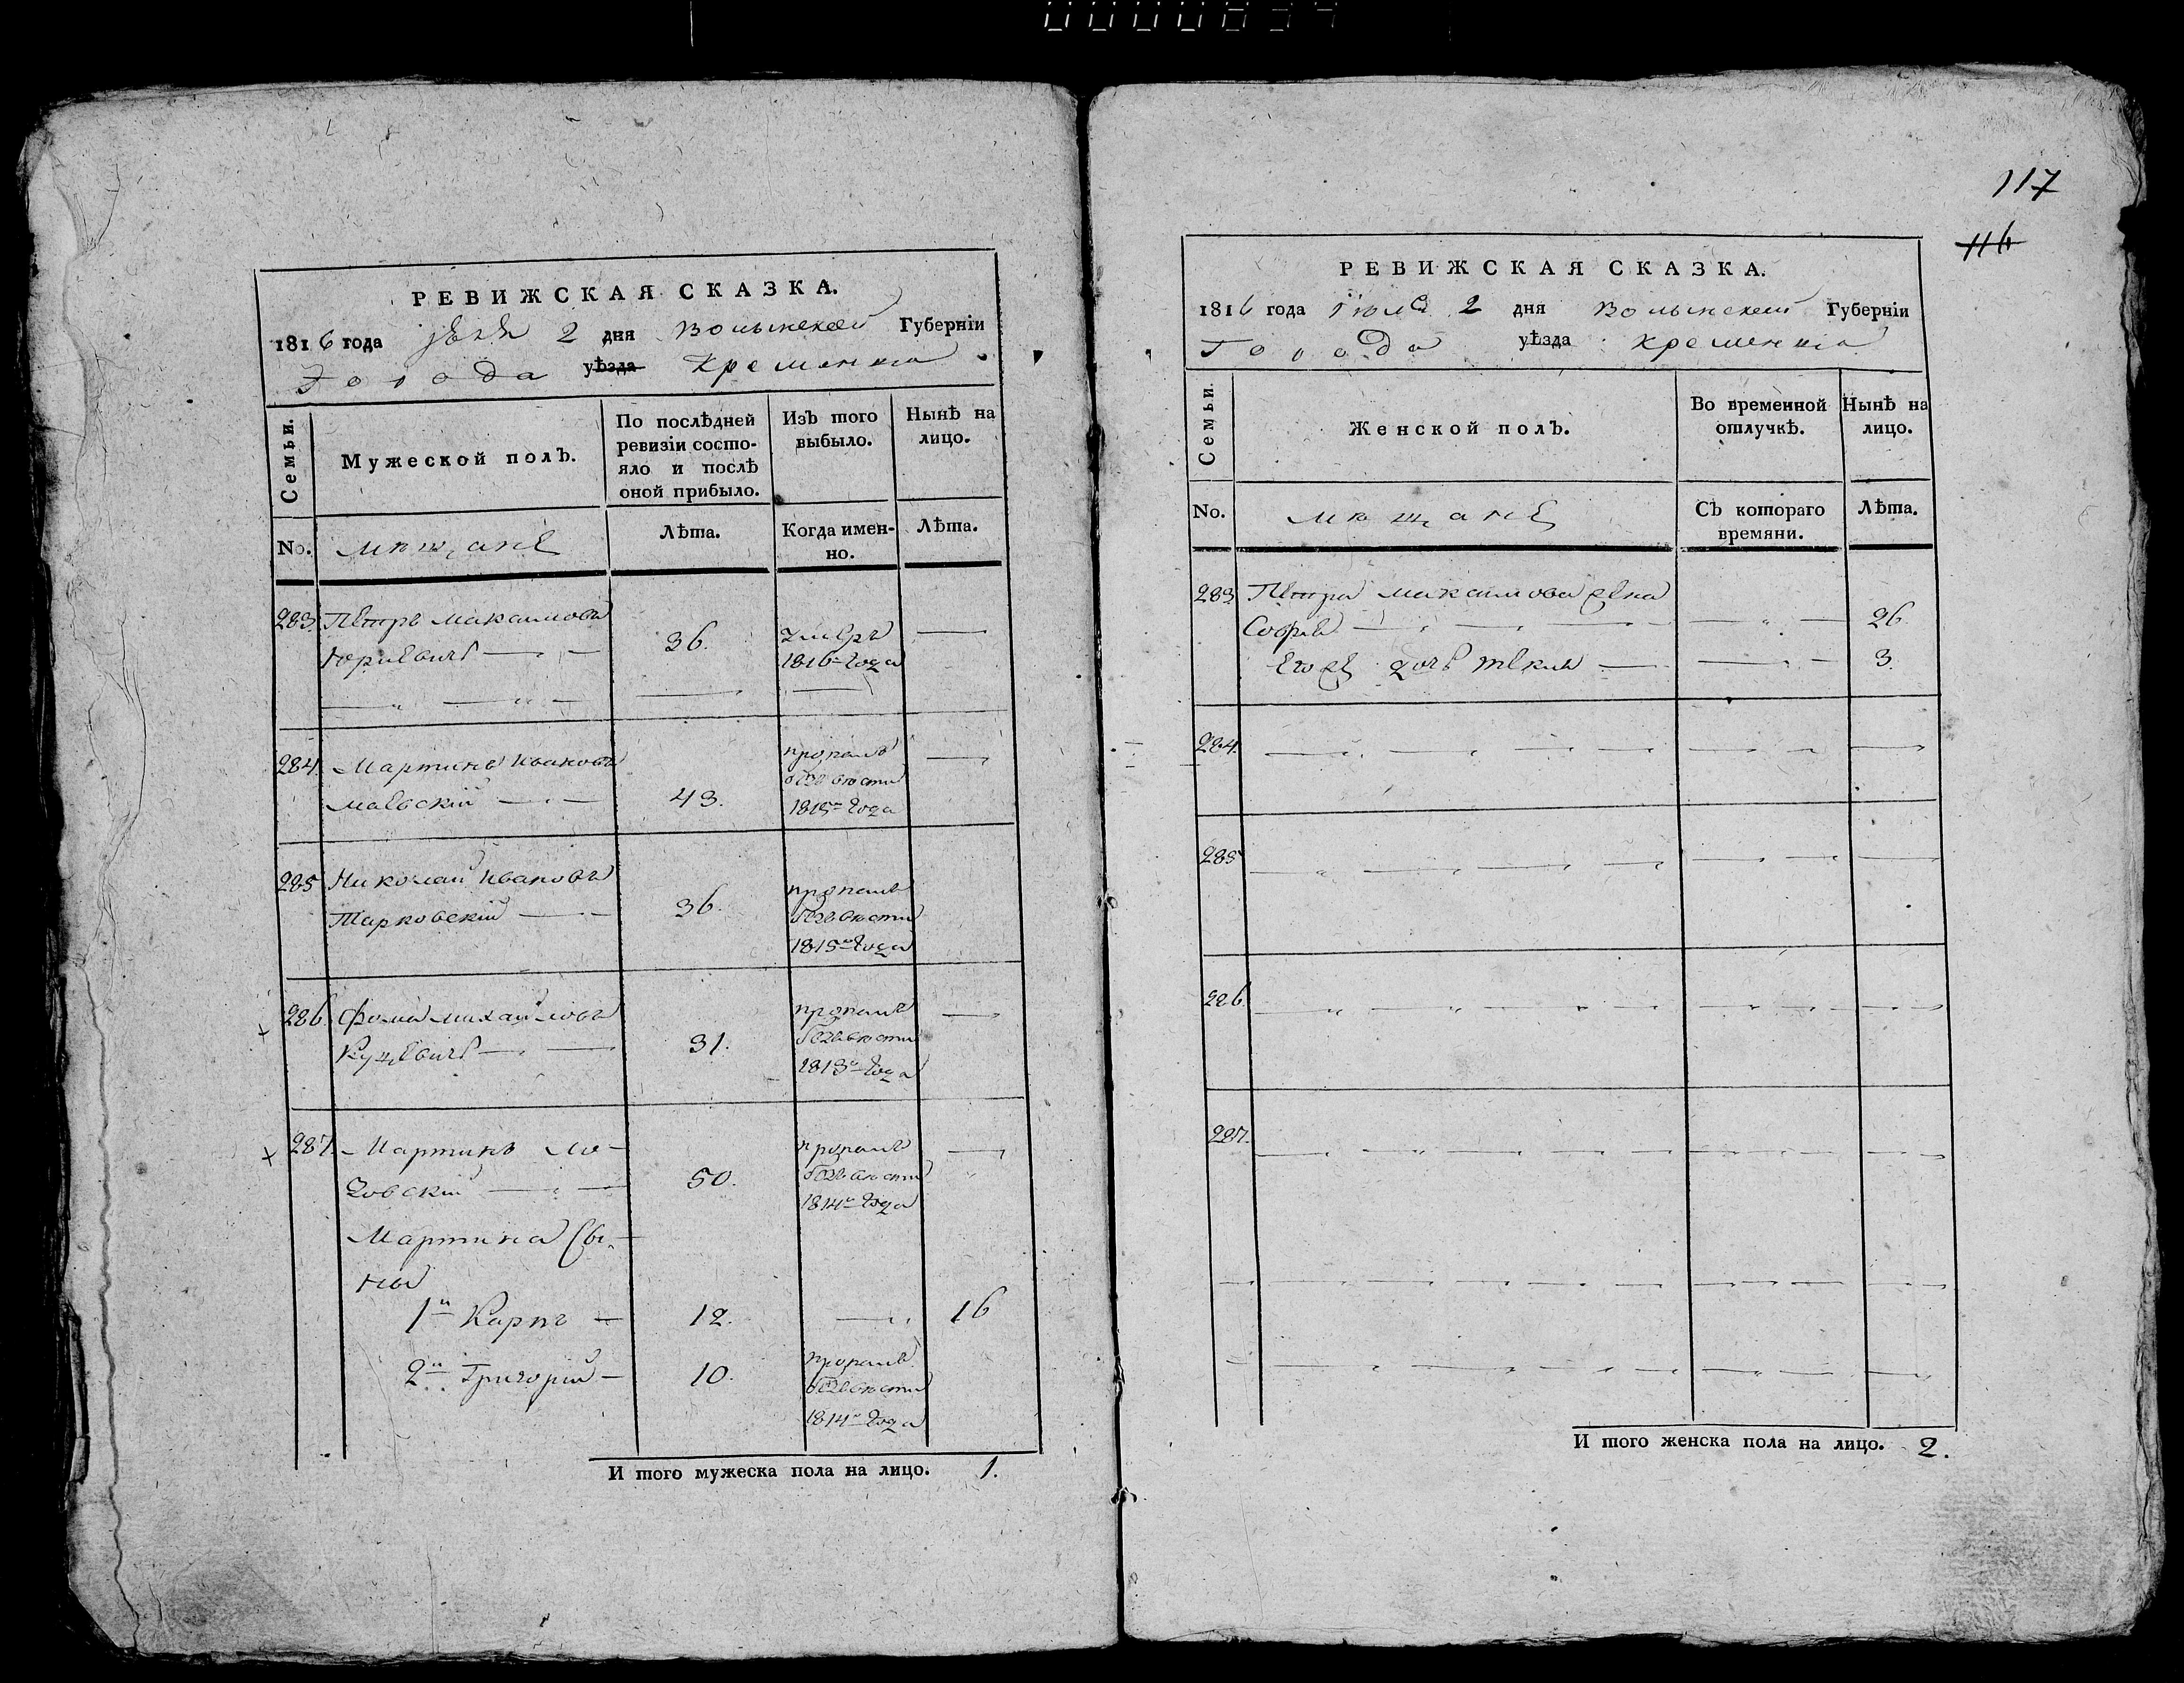 0000834
РЕВИЖСКАЯ СКАЗКА.
1816 года 2 дня Волынской Губерніи
Города уѣзда Кременца
Семьи.
Мужеской полъ.
По послѣдней
ревизіи состо-
яло и послѣ
оной прибыло.
Изъ того
выбыло.
Нынѣ на
лицо.
No.
мѣщане
Лѣта.
Когда имен-
но.
Лѣта.
283. Петръ Максимовъ
Юріевичъ 36. умеръ
1816 года
284. Мартинъ Ивановъ
Маевскій 43. пропалъ
безъ вѣсти
1815го года
285 Николай Ивановъ
Тарковскій 36. пропалъ
безъ вѣсти
1815го года
286. Фома Михайловъ
31. пропалъ
безъ вѣсти
1813го года
287. Мартинъ
50. пропалъ
безъ вѣсти
1814го года
Мартина Сы-
ны
1й Карпъ 12. 16
2й Григорій 10. пропалъ
безъ вѣсти
1814го года
И того мужеска пола на лицо. 1.
117
116
РЕВИЖСКАЯ СКАЗКА.
1816 года Іюля 2 дня Волынской Губерніи
Города уѣзда Кременца
Семьи.
Женской полъ.
Во временной
отлучкѣ.
Нынѣ на
лицо.
No.
мѣщане
Съ котораго
времяни.
Лѣта.
283 Петра Максимова жена
Софья 26
Его же дочь Текля 3.
284.
285
286.
287.
И того женска пола на лицо. 2.